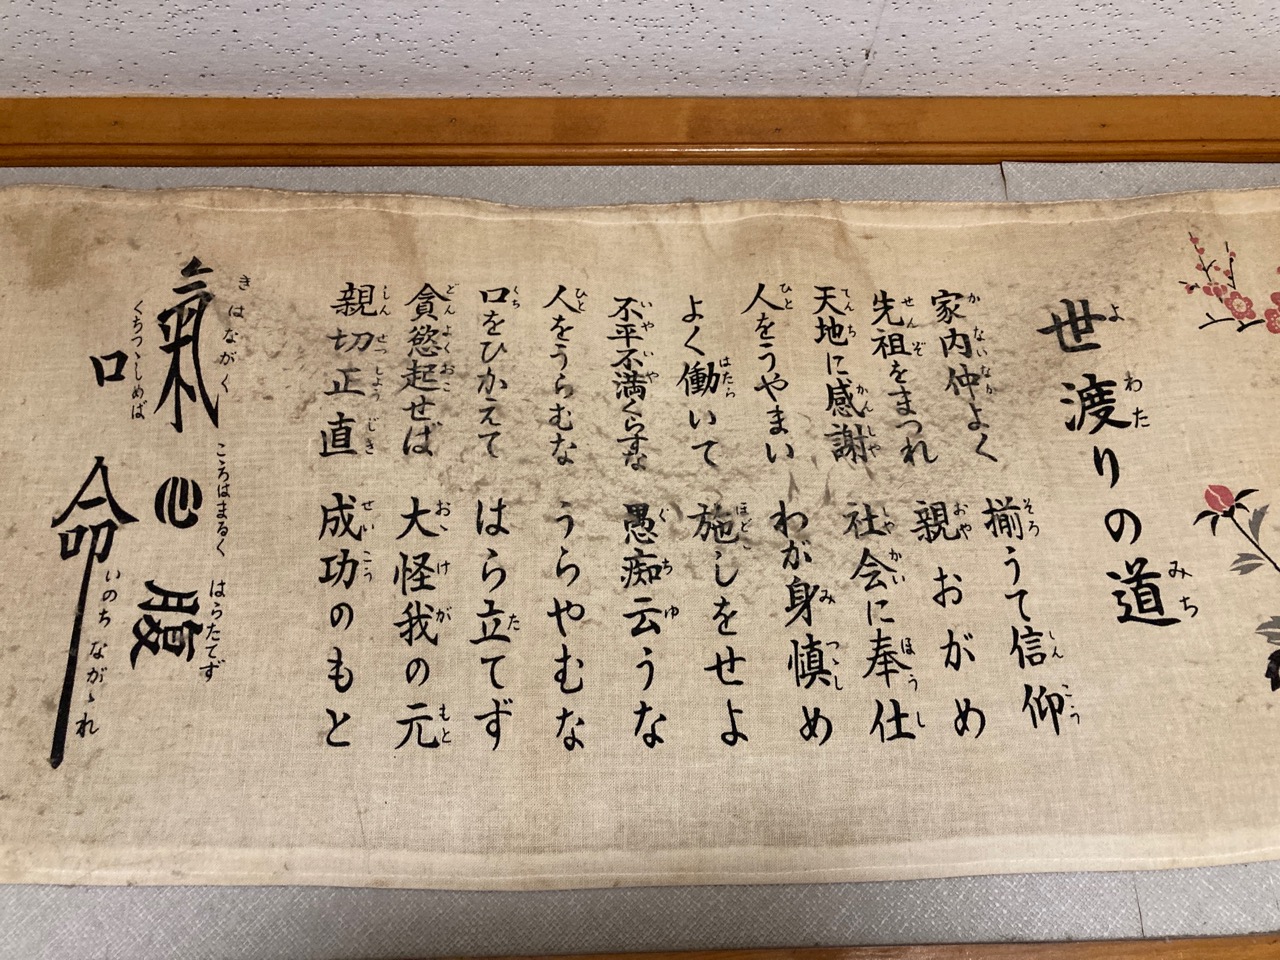 世渡りの道
家内仲よく 揃うて信仰
先祖をまつれ 親おがめ
天地に感謝 社会に奉仕
人をうやまい わが身慎め
よく働いて 施しをせよ
不平不満くらすな 愚痴云うな
人をうらむな うらやむな
口をひかえて はら立てず
貪慾起せば 大怪我の元
親切正直 成功のもと
氣 心 腹
きはながく こゝろはまるく はらたてず
口 命
くちつゝしめば いのちながゝれ